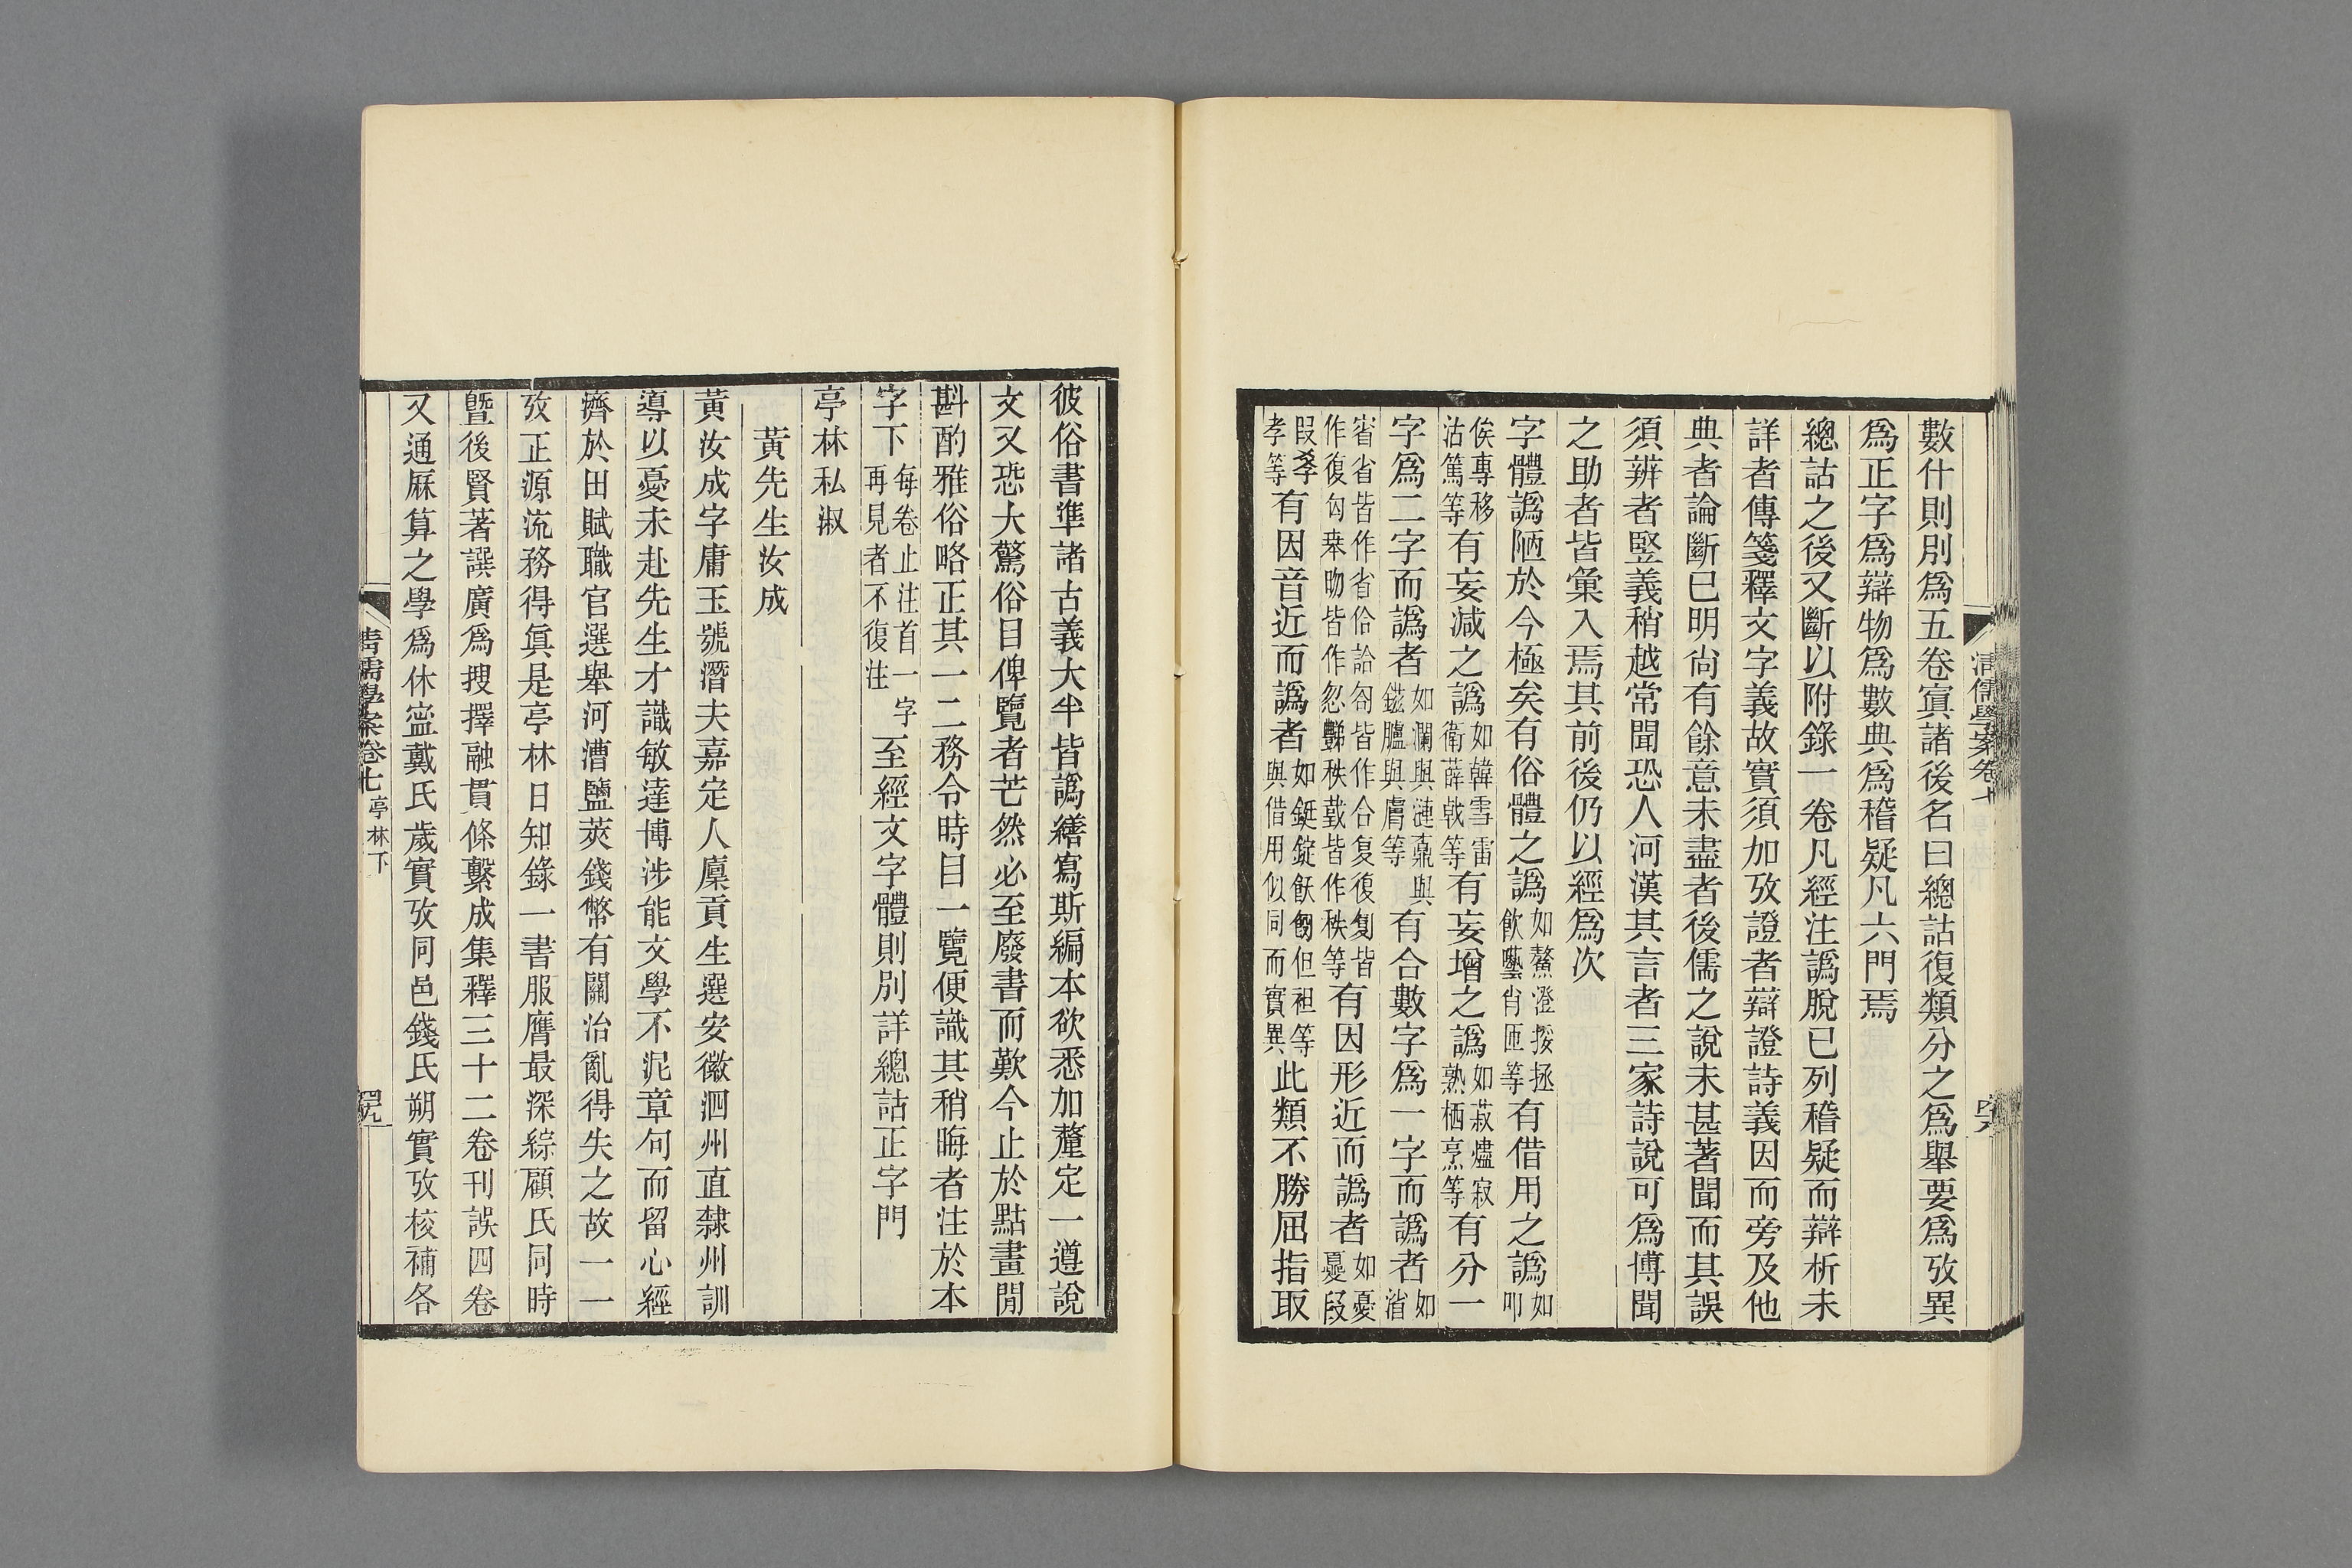 數什則別爲五卷寘諸後名曰總詁復類分之爲舉要爲攷異
爲正字爲辯物爲數典爲稽疑凡六門焉
總詁之後又斷以附錄一卷凡經注譌脫已列稽疑而辯析未
詳者傳箋釋文字義故實須加攷證者辯證詩義因而旁及他
典者論斷已明尙有餘意未盡者後儒之說未甚著聞而其誤
須辨者堅義稍越常聞恐人河漢其言者三家詩說可爲博聞
之助者皆彙入焉其前後仍以經爲次
字體譌陋於今極矣有俗體之譌如鰲澄挼拯飲藝肖匝等有借用之譌如叩
俟專移沽篤等有妄減之譌如韓雪雷衛薛戟等有妄增之譌如菽爐寂熟栖烹等有分一
字爲二字而譌者如瀾與漣鼐與鎡臚與膚等有合數字爲一字而譌者如渻
省皆作省佮詥匌皆作合复復皆作復匃皆作忽豒秩臷皆作秩等有因形近而譌者如憂㥑段
叚孝等有因音近而譌者如鋌錠飫但袒等與借用似同而實異此類不勝屈指取
清儒學案卷七
彼俗書準諸古義大半皆譌繕寫斯編本欲悉加釐定一遵說
文又恐大驚俗目俾覽者芒然必至廢書而歎今止於點畫閒
斟酌雅俗略正其一二務令時目一覽便識其稍晦者注於本
字下每卷止注首一字再見者不復注至經文字體則別詳總詁正字門
亭林私淑
黃先生汝成
黃汝成字庸玉號潛夫嘉定人廩貢生選安徽泗州直隸州訓
導以憂未赴先生才識敏達博涉能文學不泥章句而留心經
濟於田賦職官選舉河漕鹽莢錢幣有關治亂得失之故一一
攷正源流務得眞是亭林日知錄一書服膺最深綜顧氏同時
曁後賢著譔廣爲搜擇融貫條繫成集釋三十二卷刊誤四卷
又通厤算之學爲休寍戴氏歲實攷同邑錢氏朔實攷校補各
清儒學案卷七 亭林下